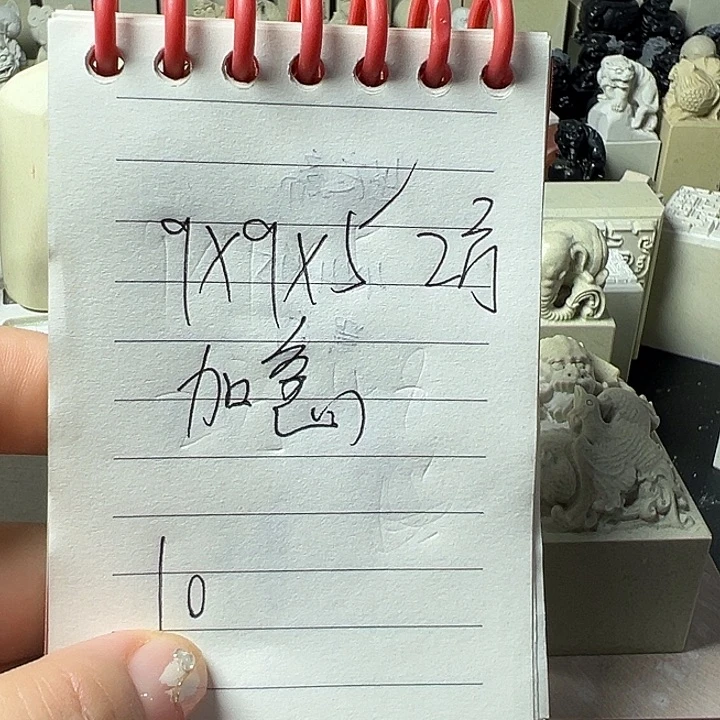 9x9x5 2
加急
10